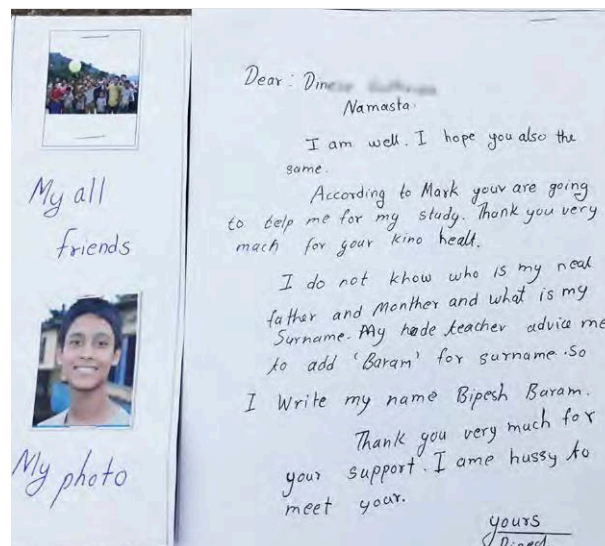 My all
friends
My photo
Dear :
Namasta.
I am well. I hope you also the
same.
According to Mark your are going
to telp me for my study. Thank you very
mach for your kino healt.
I do not khow who is my neal
father and Monther and what is my
Surname. My hede teacher advice me
to add 'Baram' for surname. So
I Write my name Bipesh Baram.
Thank you very much for
your support. I ame hussy to
meet your.
yours